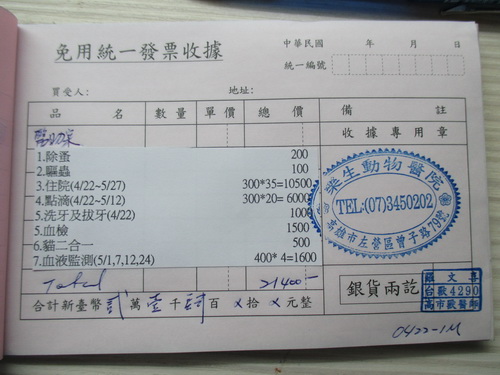 免用統一發票收據
中華民國 年 月 日
統一編號
買受人: 地址:
品 名 數量 單價 總價 備 註
收據專用章
1.除蚤 200
2.驅蟲 100
3.住院(4/22~5/27) 300*35=10500
4.點滴(4/22~5/12) 300*20= 6000
5.洗牙及拔牙(4/22) 1000
5.血檢 1500
6.貓二合一 500
7.血液監測(5/1,7,12,24) 400* 4=1600
Total 21400.-
合計新臺幣貳萬壹千肆百 x 拾 x 元整
銀貨兩訖
生動物醫院
TEL:(07)3450202
高雄市左營區曾子路79號
台獸4290
0422-1M